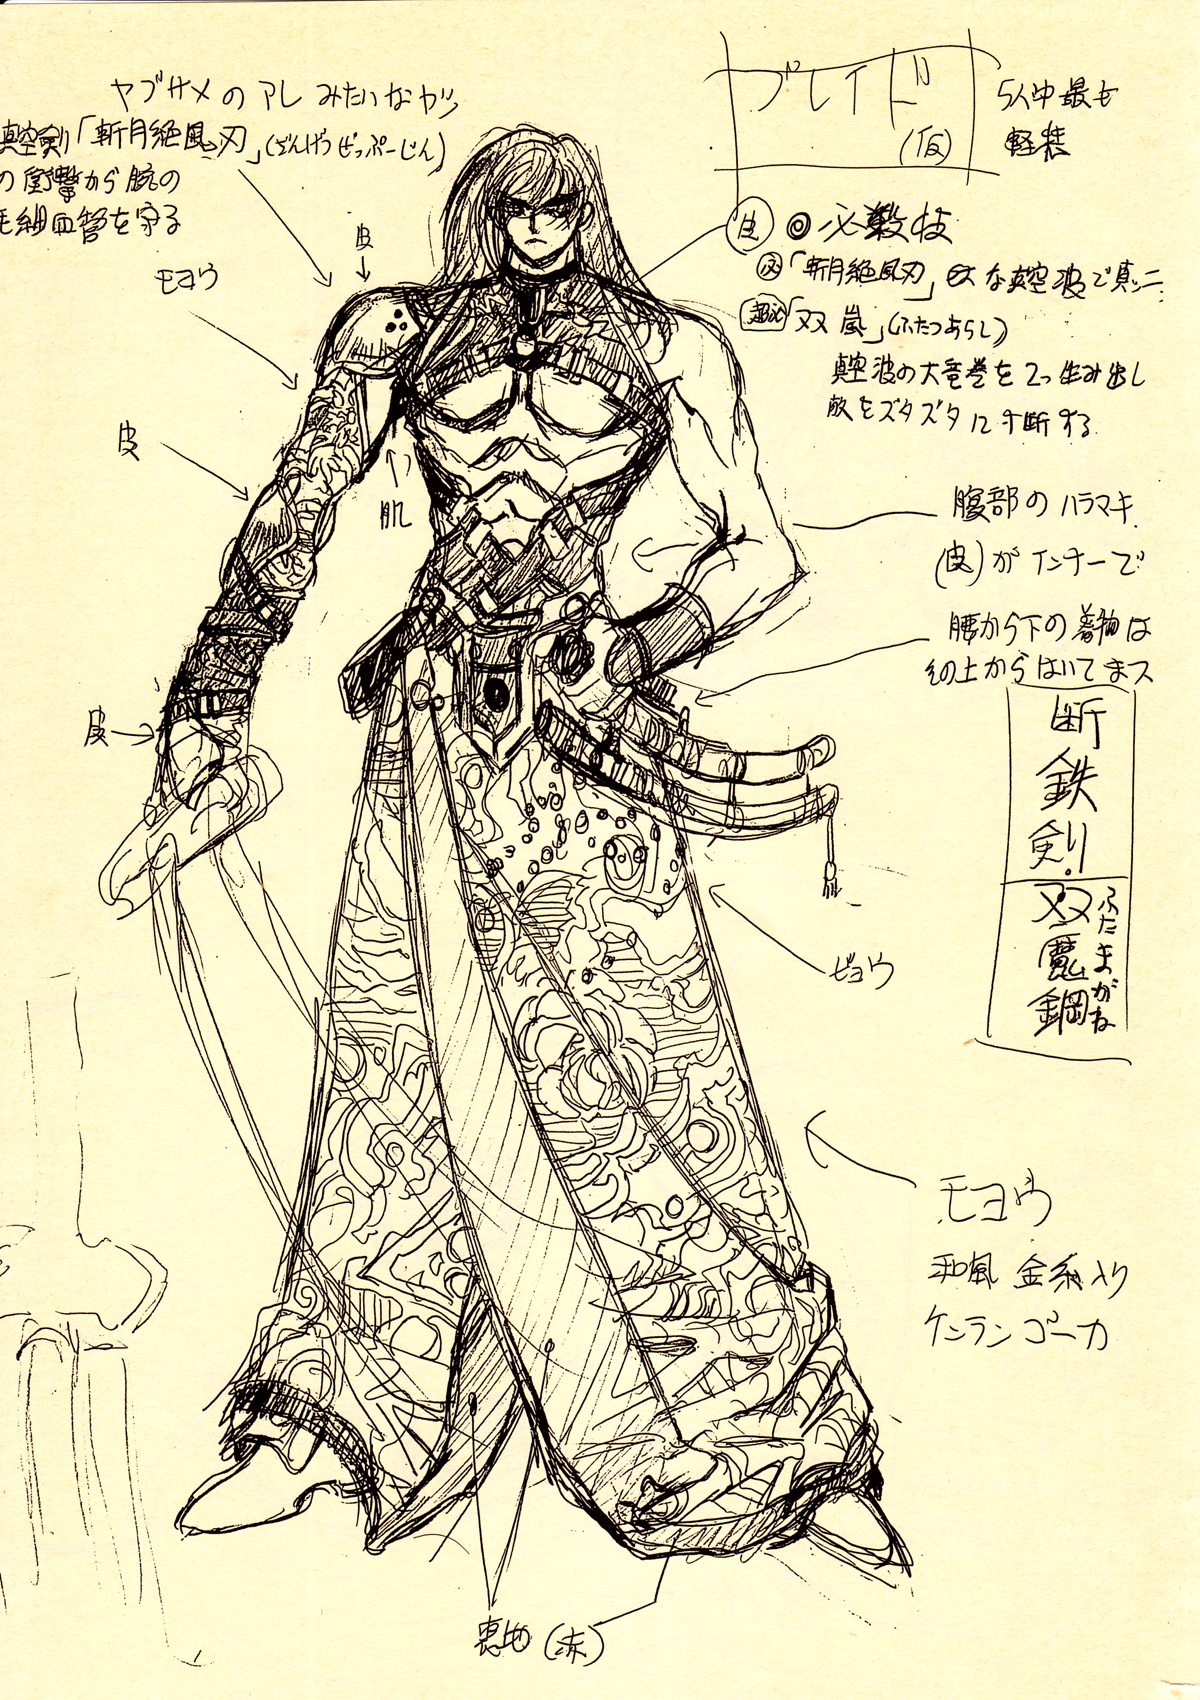 ブレイド
(仮)
5人中最も
軽装
ヤブサメのアレみたいなヤツ
真空剣「斬月絶風刃」(ざんげつぜっぷーじん)
の衝撃から腕の
毛細血管を守る
モヨウ
皮
皮
肌
皮
皮
◎必殺技
必「斬月絶風刃」巨大な真空波で真ッ二
超必「双嵐」(ふたつあらし)
真空波の大竜巻を2つ生み出し
敵をズタズタに寸断する
腹部のハラマキ
(皮)がインナーで
腰から下の着物は
その上からはいてまス
断鉄剣
双魔鋼
ふたまがね
ビョウ
モヨウ
和風 金糸入り
ケンランゴーカ
裏地(赤)